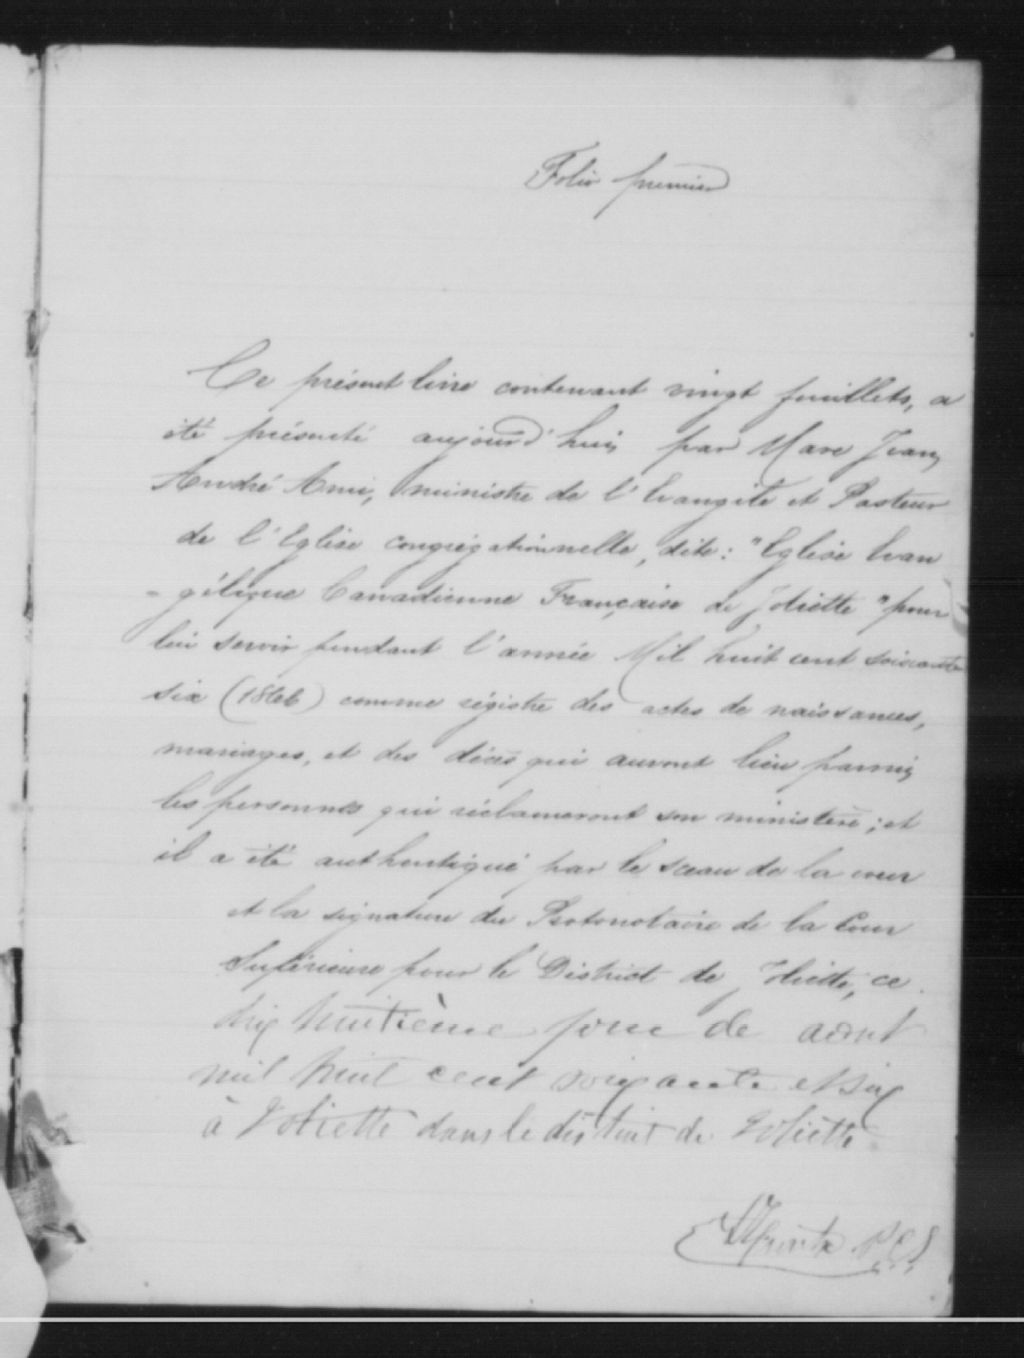 Folio premier
Ce présent livre contenant vingt feuillets, a
été présenté aujourd'hui par Marc Jean
André Ami, ministre de l'Evangile et Pasteur
de l'Eglise congrégationnelle, dite: "Eglise Evan
=gélique Canadienne Française de Joliette" pour
lui servir pendant l'année Mil huit cent soixante
six (1866) comme régistre des actes de naissances,
mariages, et des décès qui auront lieu parmi
les personnes qui réclameront son ministère; et
il a été authentiqué par le sceau de la cour
et la signature du Protonotaire de la Cour
Supérieure pour le District de Joliette, ce
dix huitième jour de aout
mil huit cent soixante et six
à Joliette dans le district de Joliette
P.C.S.